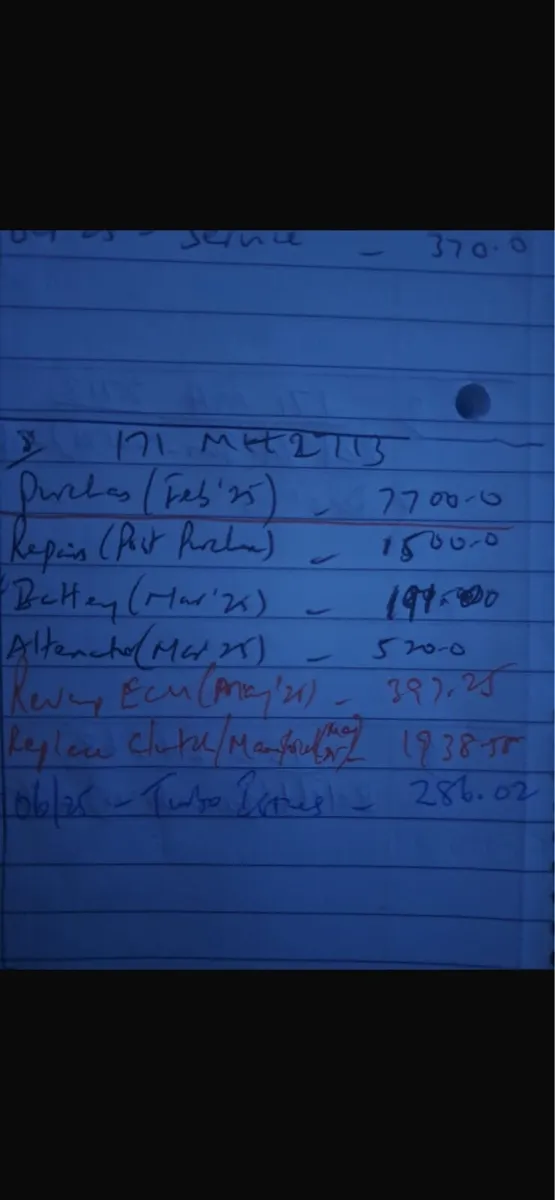 Service - 370.0
171 MH 2713
Purchas (Feb '25) - 7700.0
Repairs (Post Purchase) - 1500.0
Battery (Mar '25) -
Alternator (Mar '25) - 520.0
ECU (May '25) - 397.25
Replace Clutch/Manifold - 1938.55
06/25 - Turbo Issues - 286.02